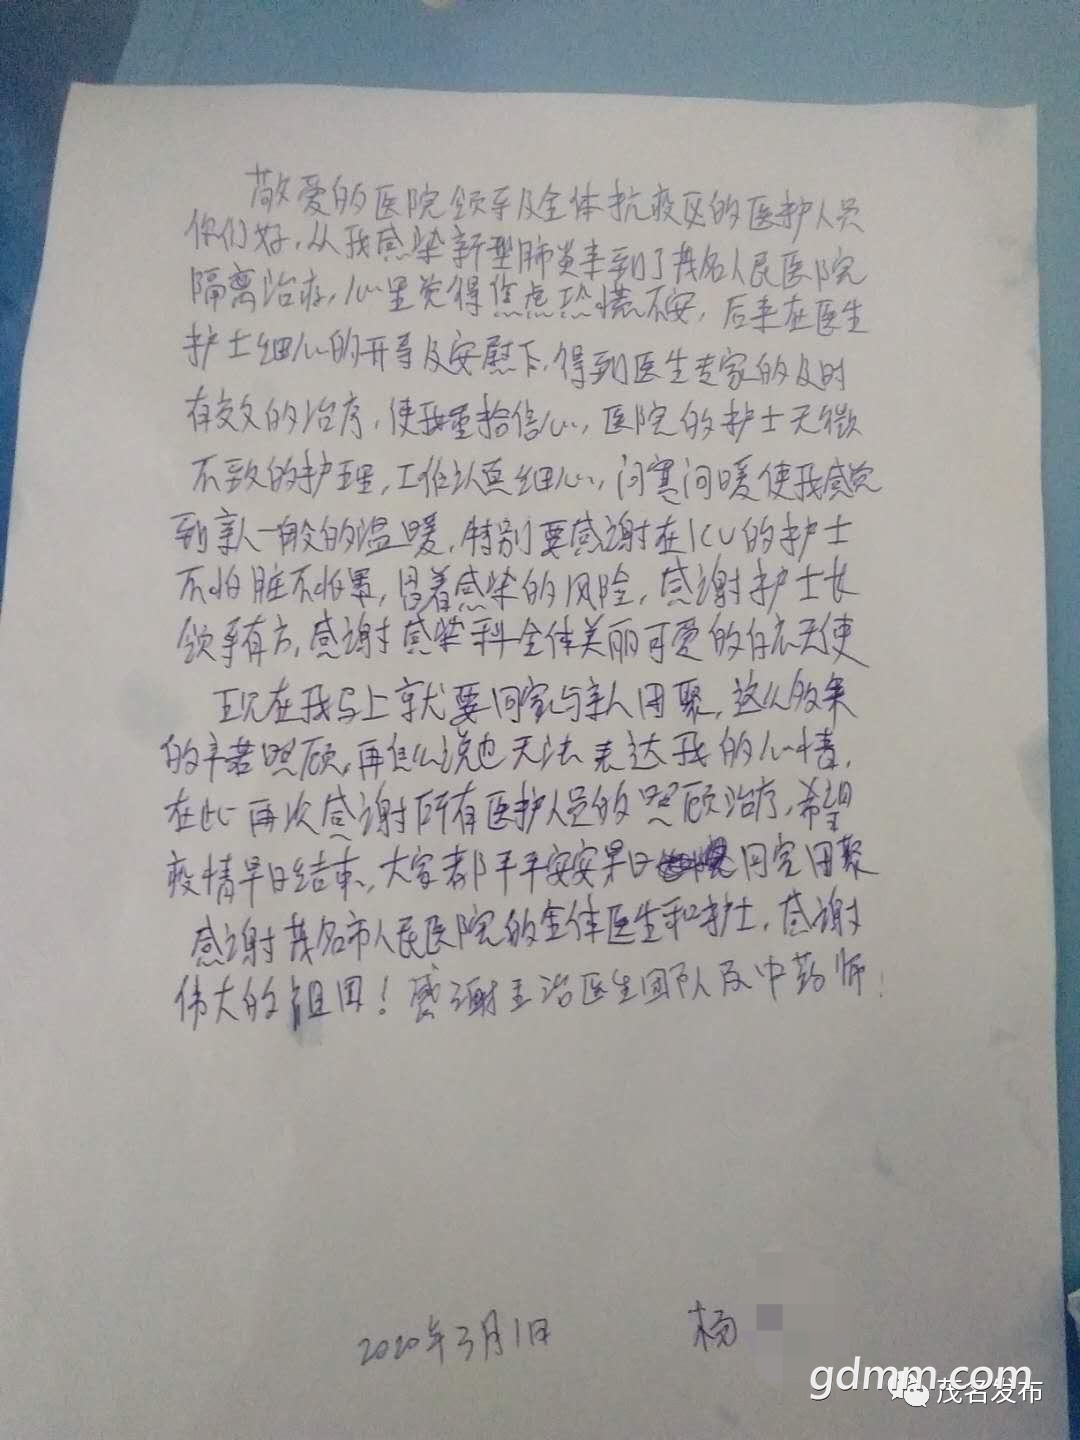 敬爱的医院领导及全体抗疫区的医护人员
你们好,从我感染新型肺炎来到了茂名人民医院
隔离治疗,心里觉得焦虑恐慌不安,后来在医生
护士细心的开导及安慰下,得到医生专家的及时
有效的治疗,使我重拾信心,医院的护士无微
不致的护理,工作认真细心,问寒问暖使我感觉
到亲人一般的温暖,特别要感谢在ICU的护士
不怕脏不怕累,冒着感染的风险,感谢护士长
领导有方,感谢感染科全体美丽可爱的白衣天使
现在我马上就要回家与亲人团聚,这么多来
的辛苦照顾,再怎么说也无法表达我的心情,
在此再次感谢所有医护人员的照顾治疗,希望
疫情早日结束,大家都平平安安早日回家团聚
感谢茂名市人民医院的全体医生和护士,感谢
伟大的祖国!感谢主治医生团队及中药师!
2020年3月1日 杨
gdmm.com
茂名发布